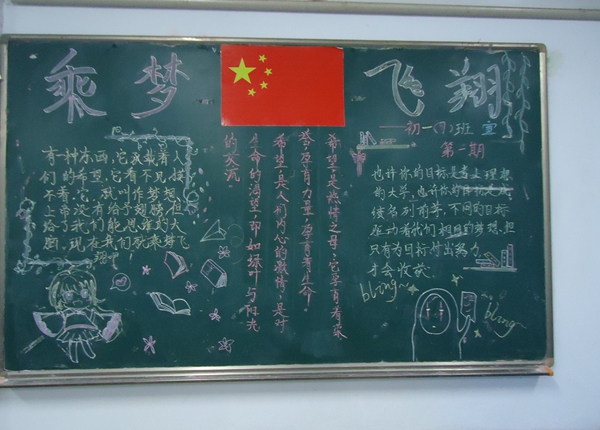 乘梦 飞翔
初一 班 宣
第 期
有一种东西,它承载着人
们的希望,它看不见摸
不着,它就叫作梦想。
上帝没有给予翅膀,但
给了我们能思维的大
脑。现在我们就乘梦飞
翔!
希望,是热情之母,它孕育着荣
誉,孕育力量,孕育着生命。
希望,是人们内心的激情,是对
生命的渴望,即如绿叶与阳光
的交流。
也许你的目标是考上理想
的大学,也许你的目标是
名列前茅,不同的目标
驱动着我们相同的梦想,但
只有为目标付出努力,
才会收获。
bling~
bling~